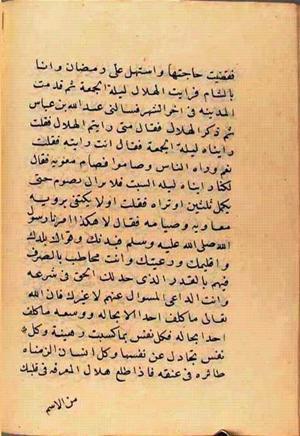 فقضيت حاجتها واستهل على رمضان وانا
بالشام فرايت الهلال ليلة الجمعة ثم قدمت
المدينه في اخر الشهر فسالني عبد الله بن عباس
ثم ذكر الهلال فقال متى رايتم الهلال فقلت
رايناه ليلة الجمعة فقال انت رايته فقلت
نعم وراه الناس وصاموا فصام معويه فقال
لكنا رايناه ليله السبت فلا نزال نصوم حتى
يكمل ثلثين او نراه فقلت اولا يكتفي بروية
معاويه وصيامه فقال لا هكذا امرنا رسول
الله صلى الله عليه وسلم فبدنك وقواك بلدك
واقليمك ورعيتك وانت مخاطب بالتصرف
فيهم بالقدر الذي حد لك الحق في شرعه
وانت الداعي المسوال عنهم لا غيرك فان الله
تعالى ما كلف احدا الا بحاله ووسعه ما كلف
احدا بحاله فكل نفس بما كسبت رهينة وكل
نفس تجادل عن نفسها وكل انسان الزمناه
طائره في عنقه فاذا طلع هلال المعرفه في قلبك
من الاسم